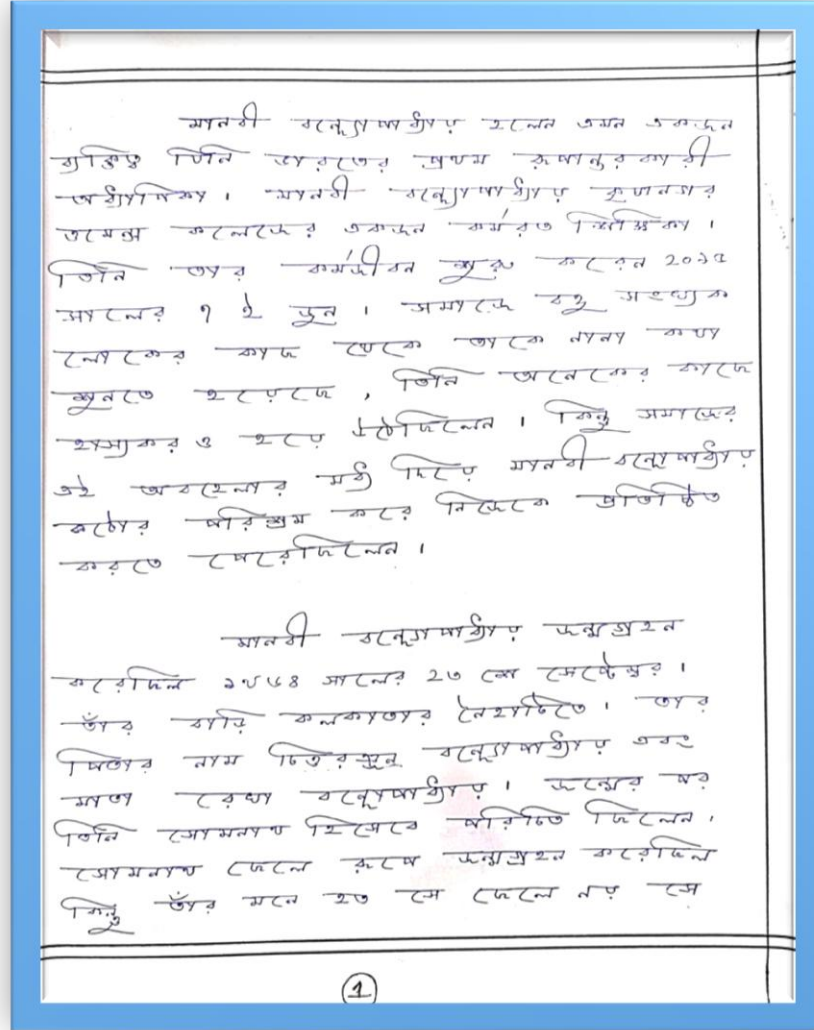 মানবী বন্দ্যোপাধ্যায় হলেন এমন একজন
ব্যক্তিত্ব যিনি ভারতের প্রথম রূপান্তরকারী
অধ্যাপিকা । মানবী বন্দ্যোপাধ্যায় কৃষ্ণনগর
ওমেন্স কলেজের একজন কর্মরত শিক্ষিকা ।
তিনি তার কর্মজীবন শুরু করেন ২০১৫
সালের ৭ ই জুন । সমাজে বহু সংখ্যক
লোকের কাছ থেকে তাকে নানা কথা
শুনতে হয়েছে , তিনি অনেকের কাছে
হাস্যকর ও হয়ে উঠেছিলেন । কিন্তু সমাজের
এই অবহেলার মধ্য দিয়ে মানবী বন্দোপাধ্যায়
কঠোর পরিশ্রম করে নিজেকে প্রতিষ্ঠিত
করতে পেরেছিলেন ।
মানবী বন্দ্যোপাধ্যায় জন্মগ্রহন
করেছিল ১৯৬৪ সালের ২৩ শে সেপ্টেম্বর ।
তাঁর বাড়ি কলকাতার নৈহাটিতে । তার
পিতার নাম চিত্তরঞ্জন বন্দ্যোপাধ্যায় এবং
মাতা রেখা বন্দ্যোপাধ্যায় । জন্মের পর
তিনি সোমনাথ হিসেবে পরিচিত ছিলেন ।
সোমনাথ ছেলে রূপে জন্মগ্রহন করেছিল
কিন্তু তাঁর মনে হত সে ছেলে নয় সে
1